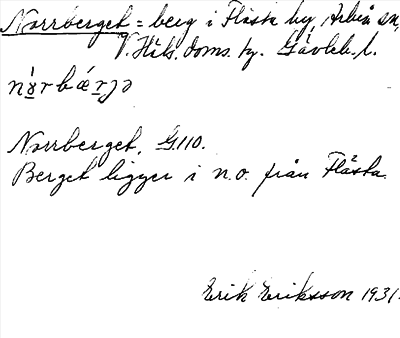 Norrberget = berg i Flästa by, Arbrå sn,
V. Häls. doms. hg. Gävleb. l.
nɤ́rbǽrjə
Norrberget. G.110.
Berget ligger i n.o. från Flästa.
Erik Eriksson 1931.